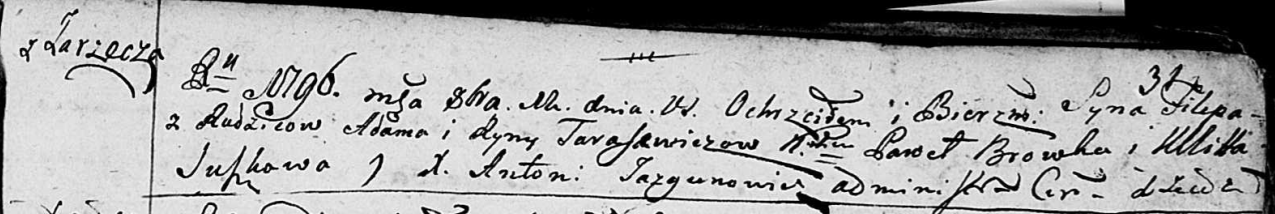 z Zarzecza
34
Ru 1796. msca 8bra. dnia. Ochrzciłem i Bierzm: Syna Filipa
z Rodzicow Adama i Ryny Tarasewiczow Paweł Browka i Ullita
Suszkowa X. Antoni Jazgunowicz administr Cer: